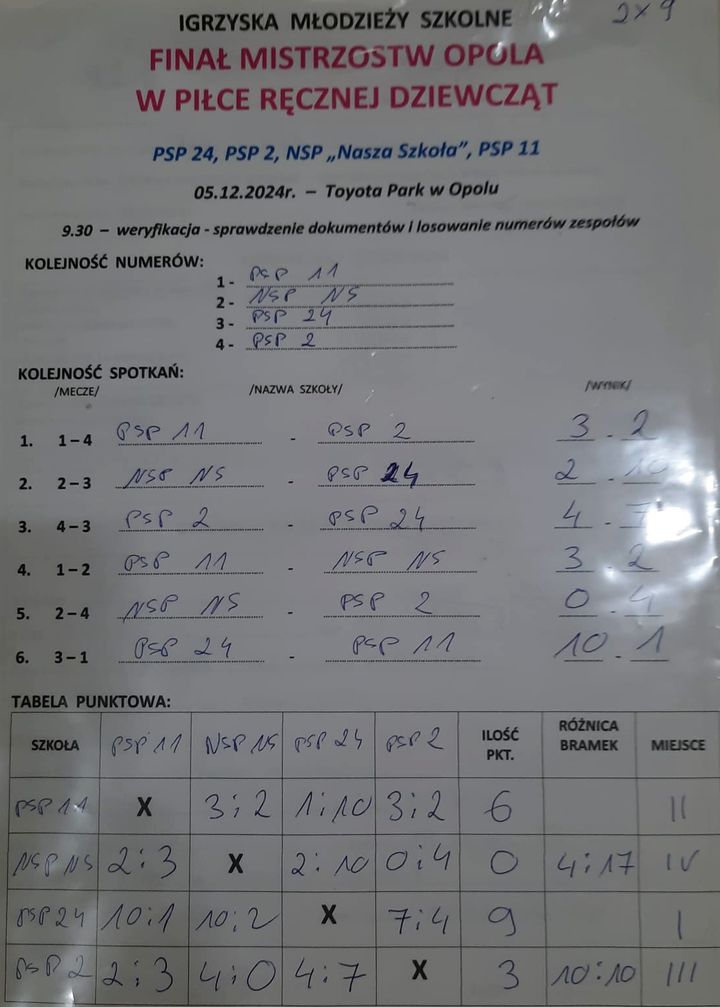 2x9
IGRZYSKA MŁODZIEŻY SZKOLNE
FINAŁ MISTRZOSTW OPOLA
W PIŁCE RĘCZNEJ DZIEWCZĄT
PSP 24, PSP 2, NSP „Nasza Szkoła”, PSP 11
05.12.2024r. – Toyota Park w Opolu
9.30 – weryfikacja - sprawdzenie dokumentów i losowanie numerów zespołów
KOLEJNOŚĆ NUMERÓW:
1 - PSP 11
2 - NSP NS
3 - PSP 24
4 - PSP 2
KOLEJNOŚĆ SPOTKAŃ:
/MECZE/ /NAZWA SZKOŁY/ /WYNIK/
1. 1 – 4 PSP 11 - PSP 2 3 - 2
2. 2 – 3 NSP NS - PSP 24 2 - 10
3. 4 – 3 PSP 2 - PSP 24 4 - 7
4. 1 – 2 PSP 11 - NSP NS 3 - 2
5. 2 – 4 NSP NS - PSP 2 0 - 4
6. 3 – 1 PSP 24 - PSP 11 10 - 1
TABELA PUNKTOWA:
SZKOŁA PSP 11 NSP NS PSP 24 PSP 2 ILOŚĆ PKT. RÓŻNICA BRAMEK MIEJSCE
PSP 11 X 3:2 1:10 3:2 6 II
NSP NS 2:3 X 2:10 0:4 0 4:17 IV
PSP 24 10:1 10:2 X 7:4 9 I
PSP 2 2:3 4:0 4:7 X 3 10:10 III